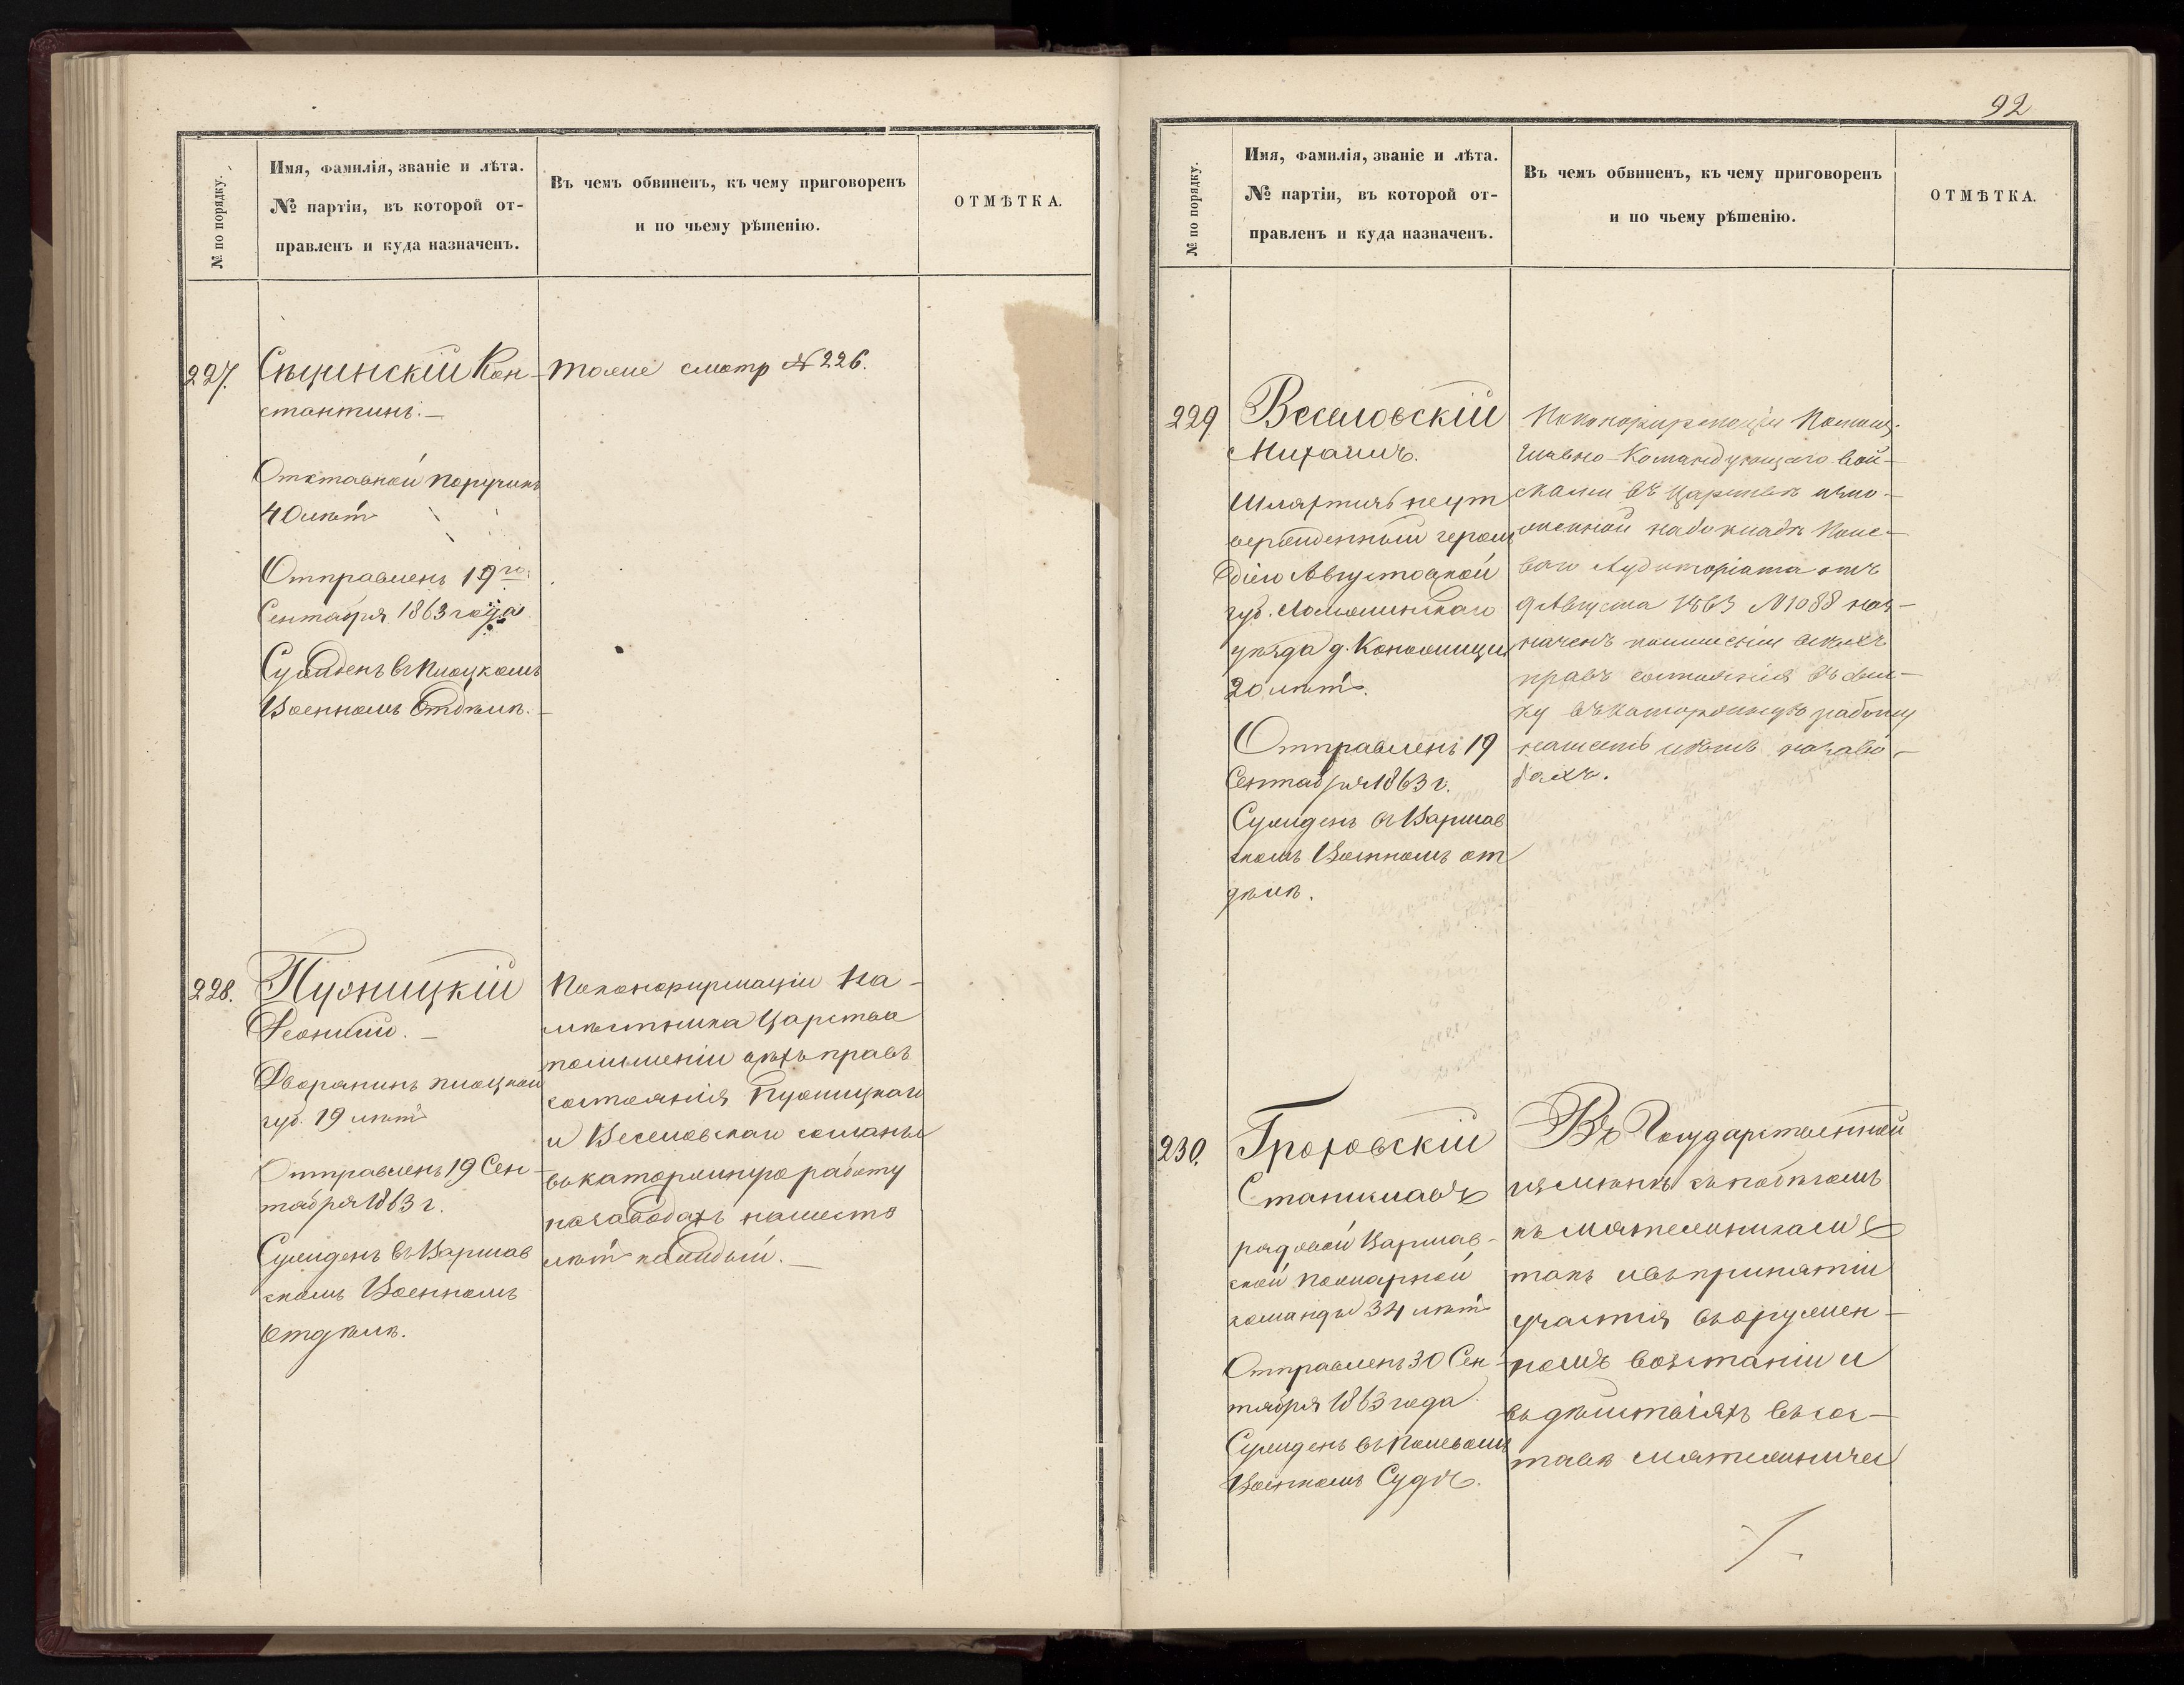 № по порядку.
Имя, фамилія, званіе и лѣта.
№ партіи, въ которой от-
правленъ и куда назначенъ.
Въ чемъ обвиненъ, къ чему приговоренъ
и по чьему рѣшенію.
ОТМѢТКА.
227.
Кон-
стантинъ. —
Отставной Поручикъ
40 лѣтъ
Отправленъ 19го
Сентября 1863 года
Сужденъ въ Плоцкомъ
Военномъ Отдѣлѣ. —
тоже смотр № 226.
228.
Пузницкій
Леонтій. —
Дворянинъ плоцкой
губ. 19 лѣтъ
Отправленъ 19 Сен-
тября 1863 г.
Сужденъ въ Варшав
скомъ Военномъ
Отдѣлѣ.
По конфирмаціи На-
мѣстника Царства
по лишеніи всѣхъ правъ
состоянія Пузницкаго
и Веселовскаго сослать
въ каторжную работу
на заводахъ на шесть
лѣтъ каждый. —
92
№ по порядку.
Имя, фамилія, званіе и лѣта.
№ партіи, въ которой от-
правленъ и куда назначенъ.
Въ чемъ обвиненъ, къ чему приговоренъ
и по чьему рѣшенію.
ОТМѢТКА.
229
Веселовскій
Михаилъ.
Шляхтичъ неут
вержденный герол
діею Августовской
губ. Ломжинскаго
уѣзда д.
20 лѣтъ.
Отправленъ 19
Сентября 1863 г.
Сужденъ въ Варшав
скомъ Военномъ от
дѣлѣ.
По конфирмаціи
Главно-Командующаго вой-
сками въ Царствѣ изло-
женной на докладѣ Поле-
ваго Аудиторіата отъ
9 Августа 1863 № 1088 наз-
наченъ по лишеніи всѣхъ
правъ состоянія въ ссыл-
ку въ каторжную работу
на шесть лѣтъ на заво-
дахъ.
230.
Гроховскій
Станиславъ
рядовой Варшав-
ской пожарной
команды 34 лѣтъ
Отправленъ 30 Сен-
тября 1863 года.
Сужденъ въ Полевомъ
Военномъ Судѣ.
Въ Государственной
измѣнѣ съ побѣгомъ
къ мятежникамъ
такъ и въ принятіи
участія въ вооружен-
номъ возстаніи и
въ дѣйствіяхъ въ сос-
тавѣ мятежничес